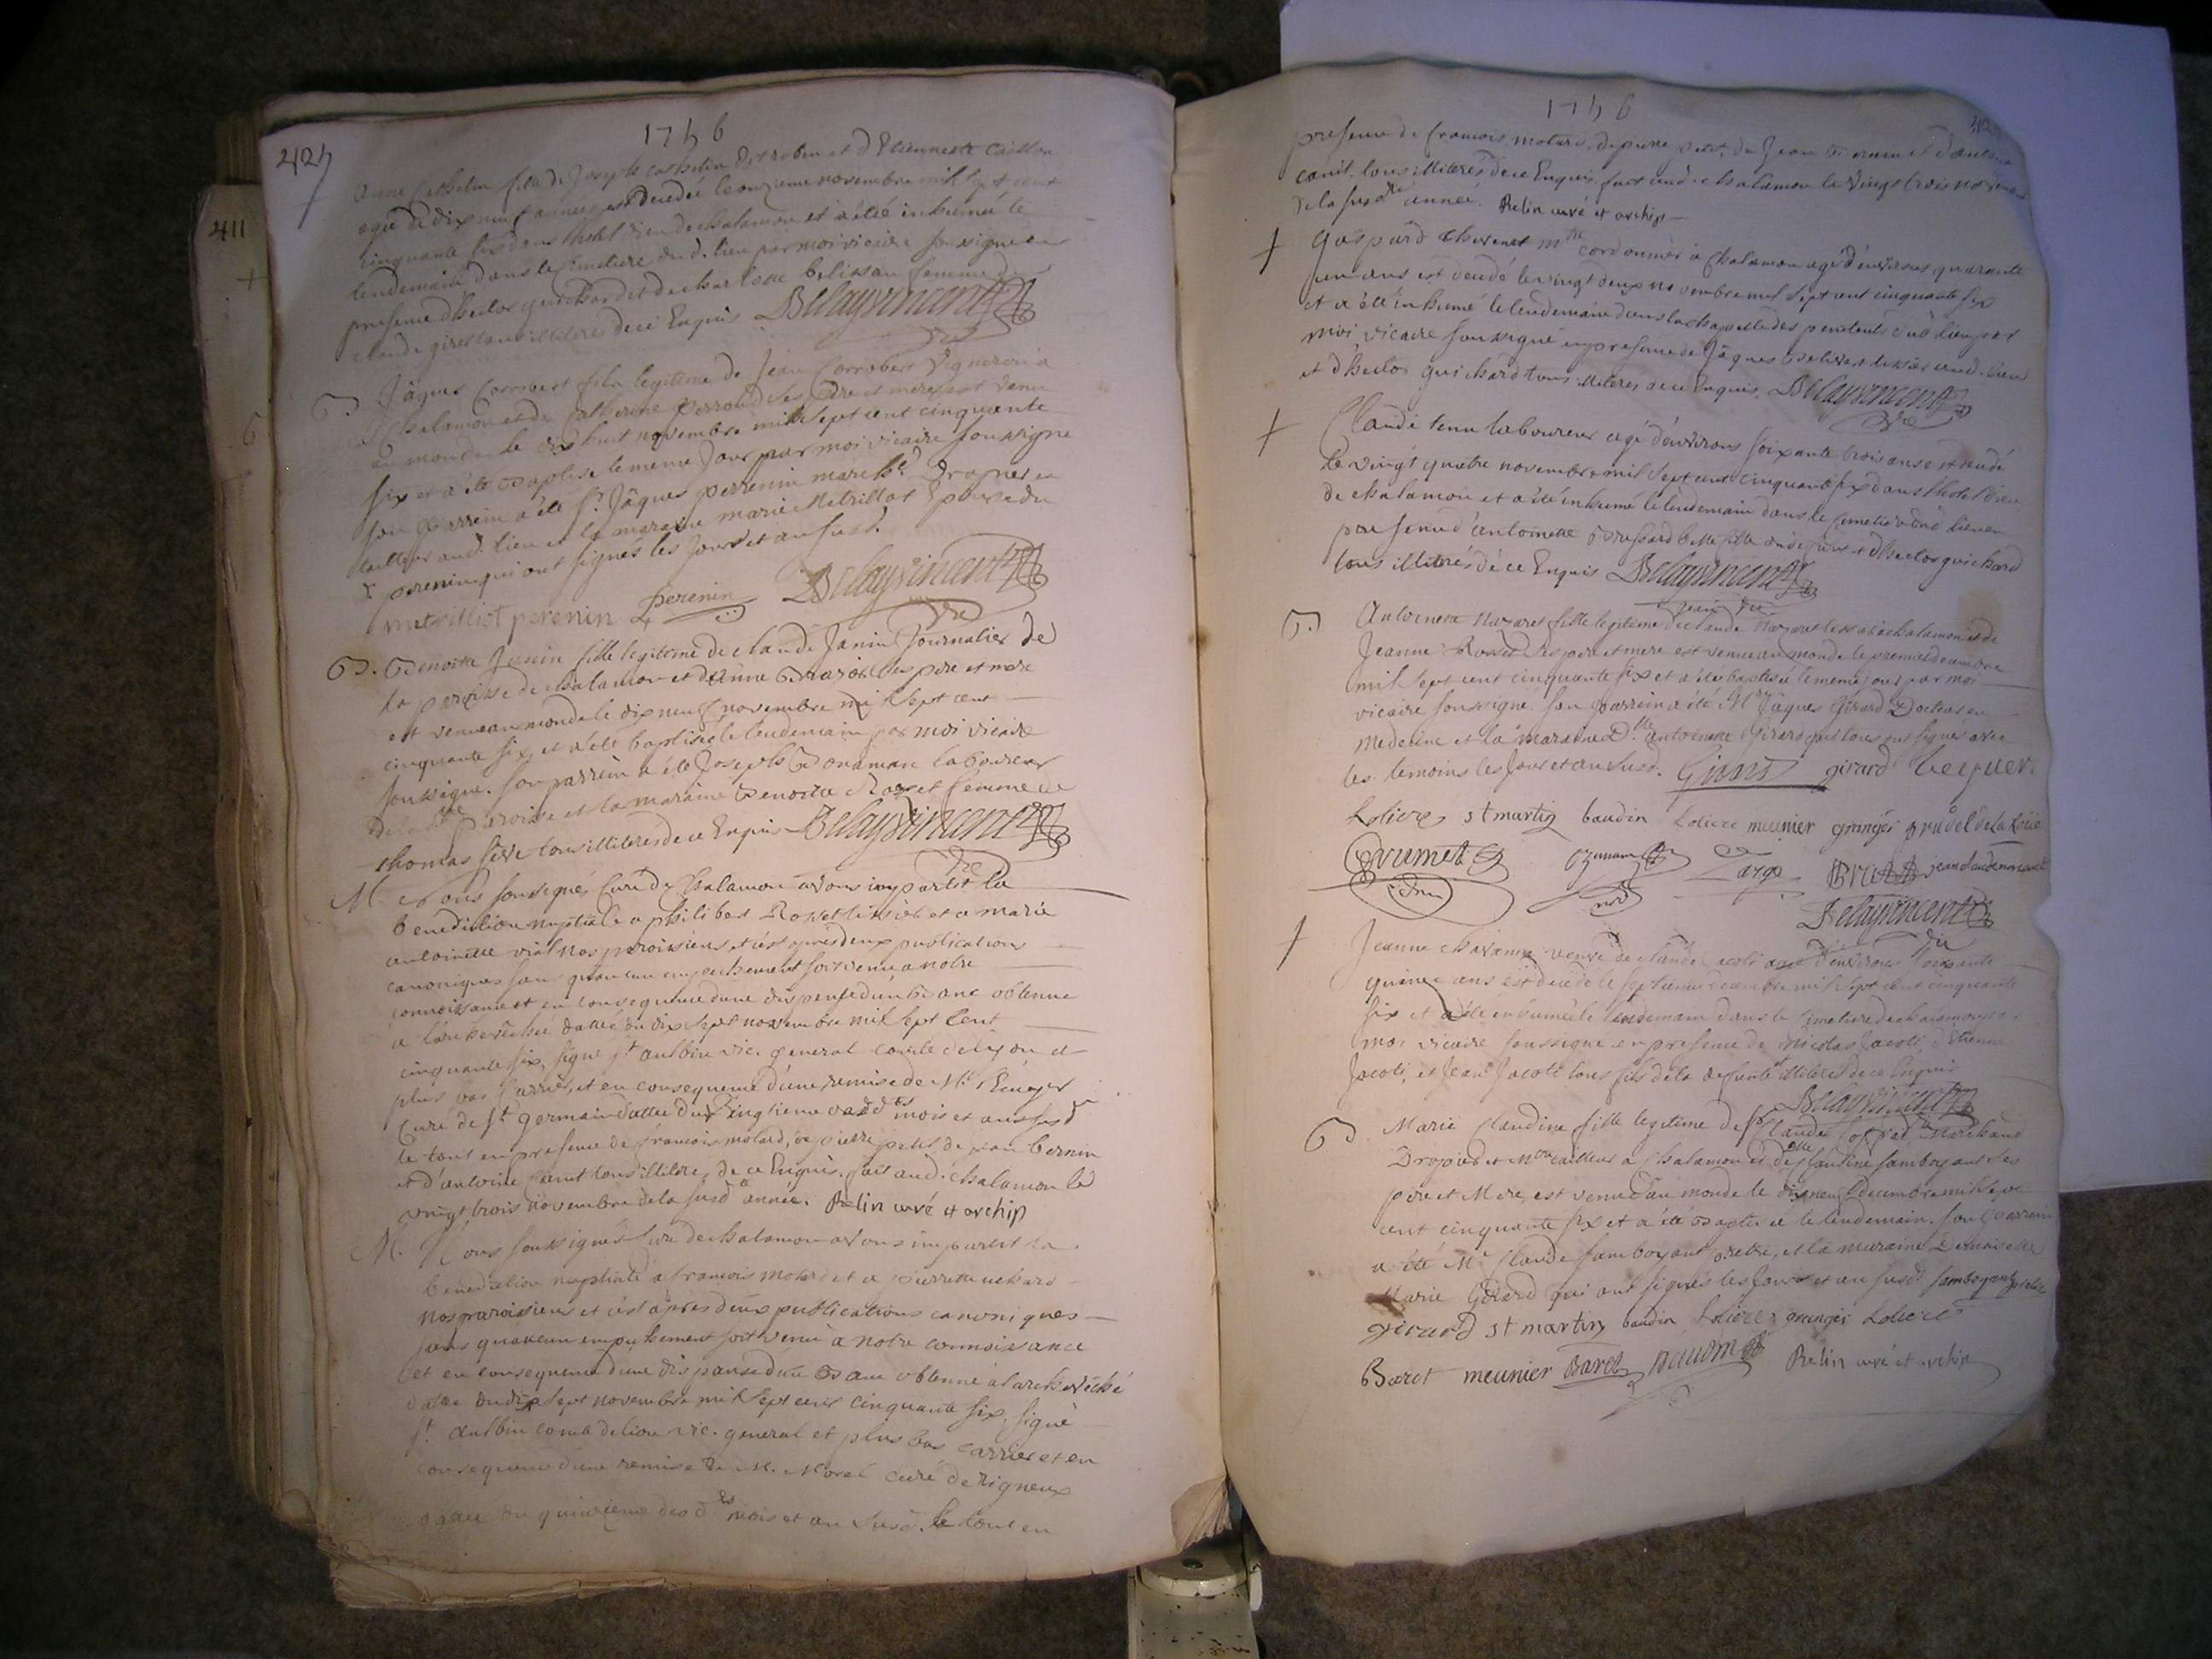 1756
424
411
anne Cathelin fille de Joseph Cathelin dit robin et d'Etiennette
agée de dix neuf années est decedée le onzieme novembre mil sept cent
cinquante six dans l'hotel dieu de chalamon et a été inhumée le
lendemain dans le cimetiere dud. lieu par moi vicaire soussigné en
presence d'hector guichard et de charlotte belissan femme de
claude girel tous illiteres de ce Enquis Delayvincent
vre
B. Jâques Corrobert fils legitime de Jean Corrobert Vigneron a
Chalamon et de Catherine Perroud ses pere et mere est venu
au monde le dix huit novembre mil sept cent cinquante
six et a été baptise le meme jour par moi vicaire soussigné
son parrein a été Sr. Jâques perrenin march.d Drapier et
tailleur aud. lieu et la maraine marie Metrillot Epouse du
Sr perenin qui ont signés les jour et an susd.
metrilliot perenin perenin Delayvincent
vre
B. Benoitte Janin fille legitime de claude Janin Journalier de
la paroisse de chalamon et d'anne ses pere et mere
est venue au monde le dix neuf novembre mil sept cent
cinquante six, et a été baptisée le lendemain par moi vicaire
soussigné. son parrein a été Joseph Bonaman laboureur
de la de paroisse et la maraine Benoitte Rosset femme de
thomas tous illiteres de ce Enquis Delayvincent
vre
M. Nous soussignés Curé de Chalamon avons impartit la
benediction nuptiale a philibert Rosset tissier et a marie
antoinette vial nos paroissiens et c'est apres deux publications
canoniques sans qu'aucun empechement soit venu a notre
connoissance et en consequence d'une dispense d'un banc obtenue
a l'archevêché dattée du dix sept novembre mil sept cent
cinquante six, signé st aulbin vic. general comte de lyon et
plus bas Carrier, et en consequence d'une remise de Mr
Curé de st germain dattée du vingtieme des dts mois et an susd
le tout en presence de francois molard, de pierre petet de jean bernin
et d'antoine canit tous illiteres de ce Enquis. fait aud. chalamon le
vingt trois novembre de la susde année. Relin curé et archip
M. Nous soussignés Curé de chalamon avons impartit la
benediction nuptiale a francois molard et a pierrette
nos paroissiens et c'est apres deux publications canoniques
sans qu'aucun empechement soit venu a notre connoissance
et en consequence d'une dispense d'un Banc obtenue a l'archevêché
dattée du dix sept novembre mil sept cent cinquante six, signé
st. aulbin comte de lion vic. general et plus bas carrier et en
consequence d'une remise de M. Morel Curé de Rigneux
dattée du quinzieme des dts mois et an susd. le tout en
1756
presence de francois molard, de pierre petet, de Jean Bernin et d'antoine
canit. tous illiteres de ce Enquis. fait aud. chalamon le vingt trois novembre
de la susde année. Relin curé et archip
† Gaspard Chevenet mtre cordonnier à Chalamon agé d'environs quarante
un ans est decedé le vingt deux novembre mil sept cent cinquante six
et a été inhumé le lendemain dans la chapelle des penitents dud lieu par
moi vicaire soussigné en presence de Jâques tissier aud. lieu
et d'hector guichard tous illiteres de ce Enquis. Delayvincent
vre
† Claude tenu laboureur agé d'environs soixante trois ans est decedé
le vingt quatre novembre mil sept cent cinquante six dans l'hotel dieu
de chalamon et a été inhumé le lendemain dans le cimetiere dud lieu en
presence d'antoinette belle fille du defunt et d'hector guichard
tous illiterés de ce Enquis Delayvincent
vre
B. Antoinette Mazaret fille legitime de claude Mazaret tissier a chalamon et de
Jeanne Rosset ses pere et mere est venue au monde le premier decembre
mil sept cent cinquante six et a été baptisée le meme jour par moi
vicaire soussigné son parrein a été Mr Jâques Girard Docteur en
medecine et la maraine Dlle antoinette Girard qui tous ont signés avec
les temoins les jour et an susd. Girard girard
Loliere st martin baudin Loliere meunier grangéi
Delayvincent
vre
† Jeanne veuve de claude Jacoti agée d'environs soixante
quinze ans est decedée le septieme decembre mil sept cent cinquante
six et a été inhumée le lendemain dans le cimetiere de chalamon par
moi vicaire soussigné en presence de Nicolas Jacoti, d'Etienne
Jacoti, et Jean Jacoti tous fils de la defunte illiteres de ce Enquis
Delayvincent
B. Marie Claudine fille legitime de Sr Claude Marchand
Drapier et Mtre tailleur a Chalamon et de Dlle Claudine Jamboyant ses
pere et Mere, est venue au monde le dix neuf decembre mil sept
cent cinquante six et a été baptisée le lendemain. son parrein
a été Mr Claude Jamboyant pretre, et la maraine Demoiselle
Marie Girard qui ont signés les jour et an susd. Jamboyant pretre
girard st martin baudin Loliere grangéi Loliere
Baret meunier Baret Relin curé et archip